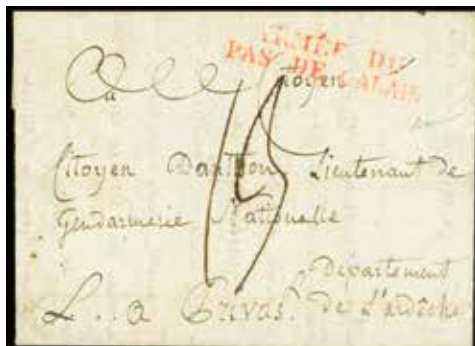 ARMÉE DU
PAS DE CALAIS
Au Citoyen
15
Citoyen Lieutenant de
Gendarmerie Nationalle
Departement
L..a Privas. de L'ardeche